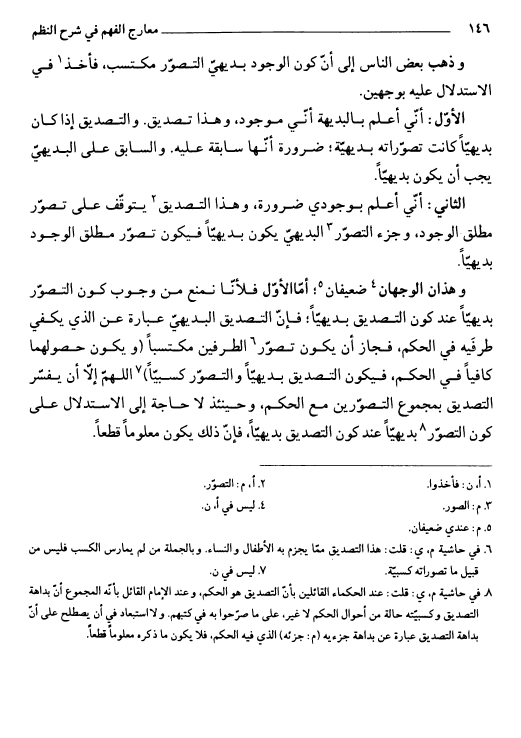 ١٤٦ معارج الفهم في شرح النظم
وذهب بعض الناس إلى أنّ كون الوجود بديهيّ التصوّر مكتسب، فأخذ١ في
الاستدلال عليه بوجهين.
الأوّل: أنّي أعلم بالبديهة أنّي موجود، وهذا تصديق. والتصديق إذا كان
بديهيّاً كانت تصوّراته بديهيّة؛ ضرورة أنّها سابقة عليه. والسابق على البديهيّ
يجب أن يكون بديهيّاً.
الثاني: أنّي أعلم بوجودي ضرورة، وهذا التصديق٢ يتوقّف على تصوّر
مطلق الوجود، وجزء التصوّر٣ البديهيّ يكون بديهيّاً فيكون تصوّر مطلق الوجود
بديهيّاً.
وهذان الوجهان٤ ضعيفان٥؛ أمّا الأوّل فلأنّا نمنع من وجوب كون التصوّر
بديهيّاً عند كون التصديق بديهيّاً؛ فإنّ التصديق البديهيّ عبارة عن الذي يكفي
طرفَيه في الحكم، فجاز أن يكون تصوّر٦ الطرفين مكتسباً (و يكون حصولهما
كافياً في الحكم، فيكون التصديق بديهيّاً والتصوّر كسبيّاً)٧ اللهمّ إلّا أن يفسّر
التصديق بمجموع التصوّرين مع الحكم، وحينئذ لا حاجة إلى الاستدلال على
كون التصوّر٨ بديهيّاً عند كون التصديق بديهيّاً، فإنّ ذلك يكون معلوماً قطعاً.
١. أ، ن: فأخذوا. ٢. أ، م: التصوّر.
٣. م: الصور. ٤. ليس في أ، ن.
٥. م: عندي ضعيفان.
٦. في حاشية م، ي: قلت: هذا التصديق ممّا يجزم به الأطفال والنساء. وبالجملة من لم يمارس الكسب فليس من
قبيل ما تصوراته كسبيّة. ٧. ليس في ن.
٨. في حاشية م، ي: قلت: عند الحكماء القائلين بأنّ التصديق هو الحكم، وعند الإمام القائل بأنّه المجموع أنّ بداهة
التصديق وكسبيّته حالة من أحوال الحكم لا غير، على ما صرّحوا به في كتبهم. ولا استبعاد في أن يصطلح على أنّ
بداهة التصديق عبارة عن بداهة جزءيه (م: جزئه) الذي فيه الحكم، فلا يكون ما ذكره معلوماً قطعاً.